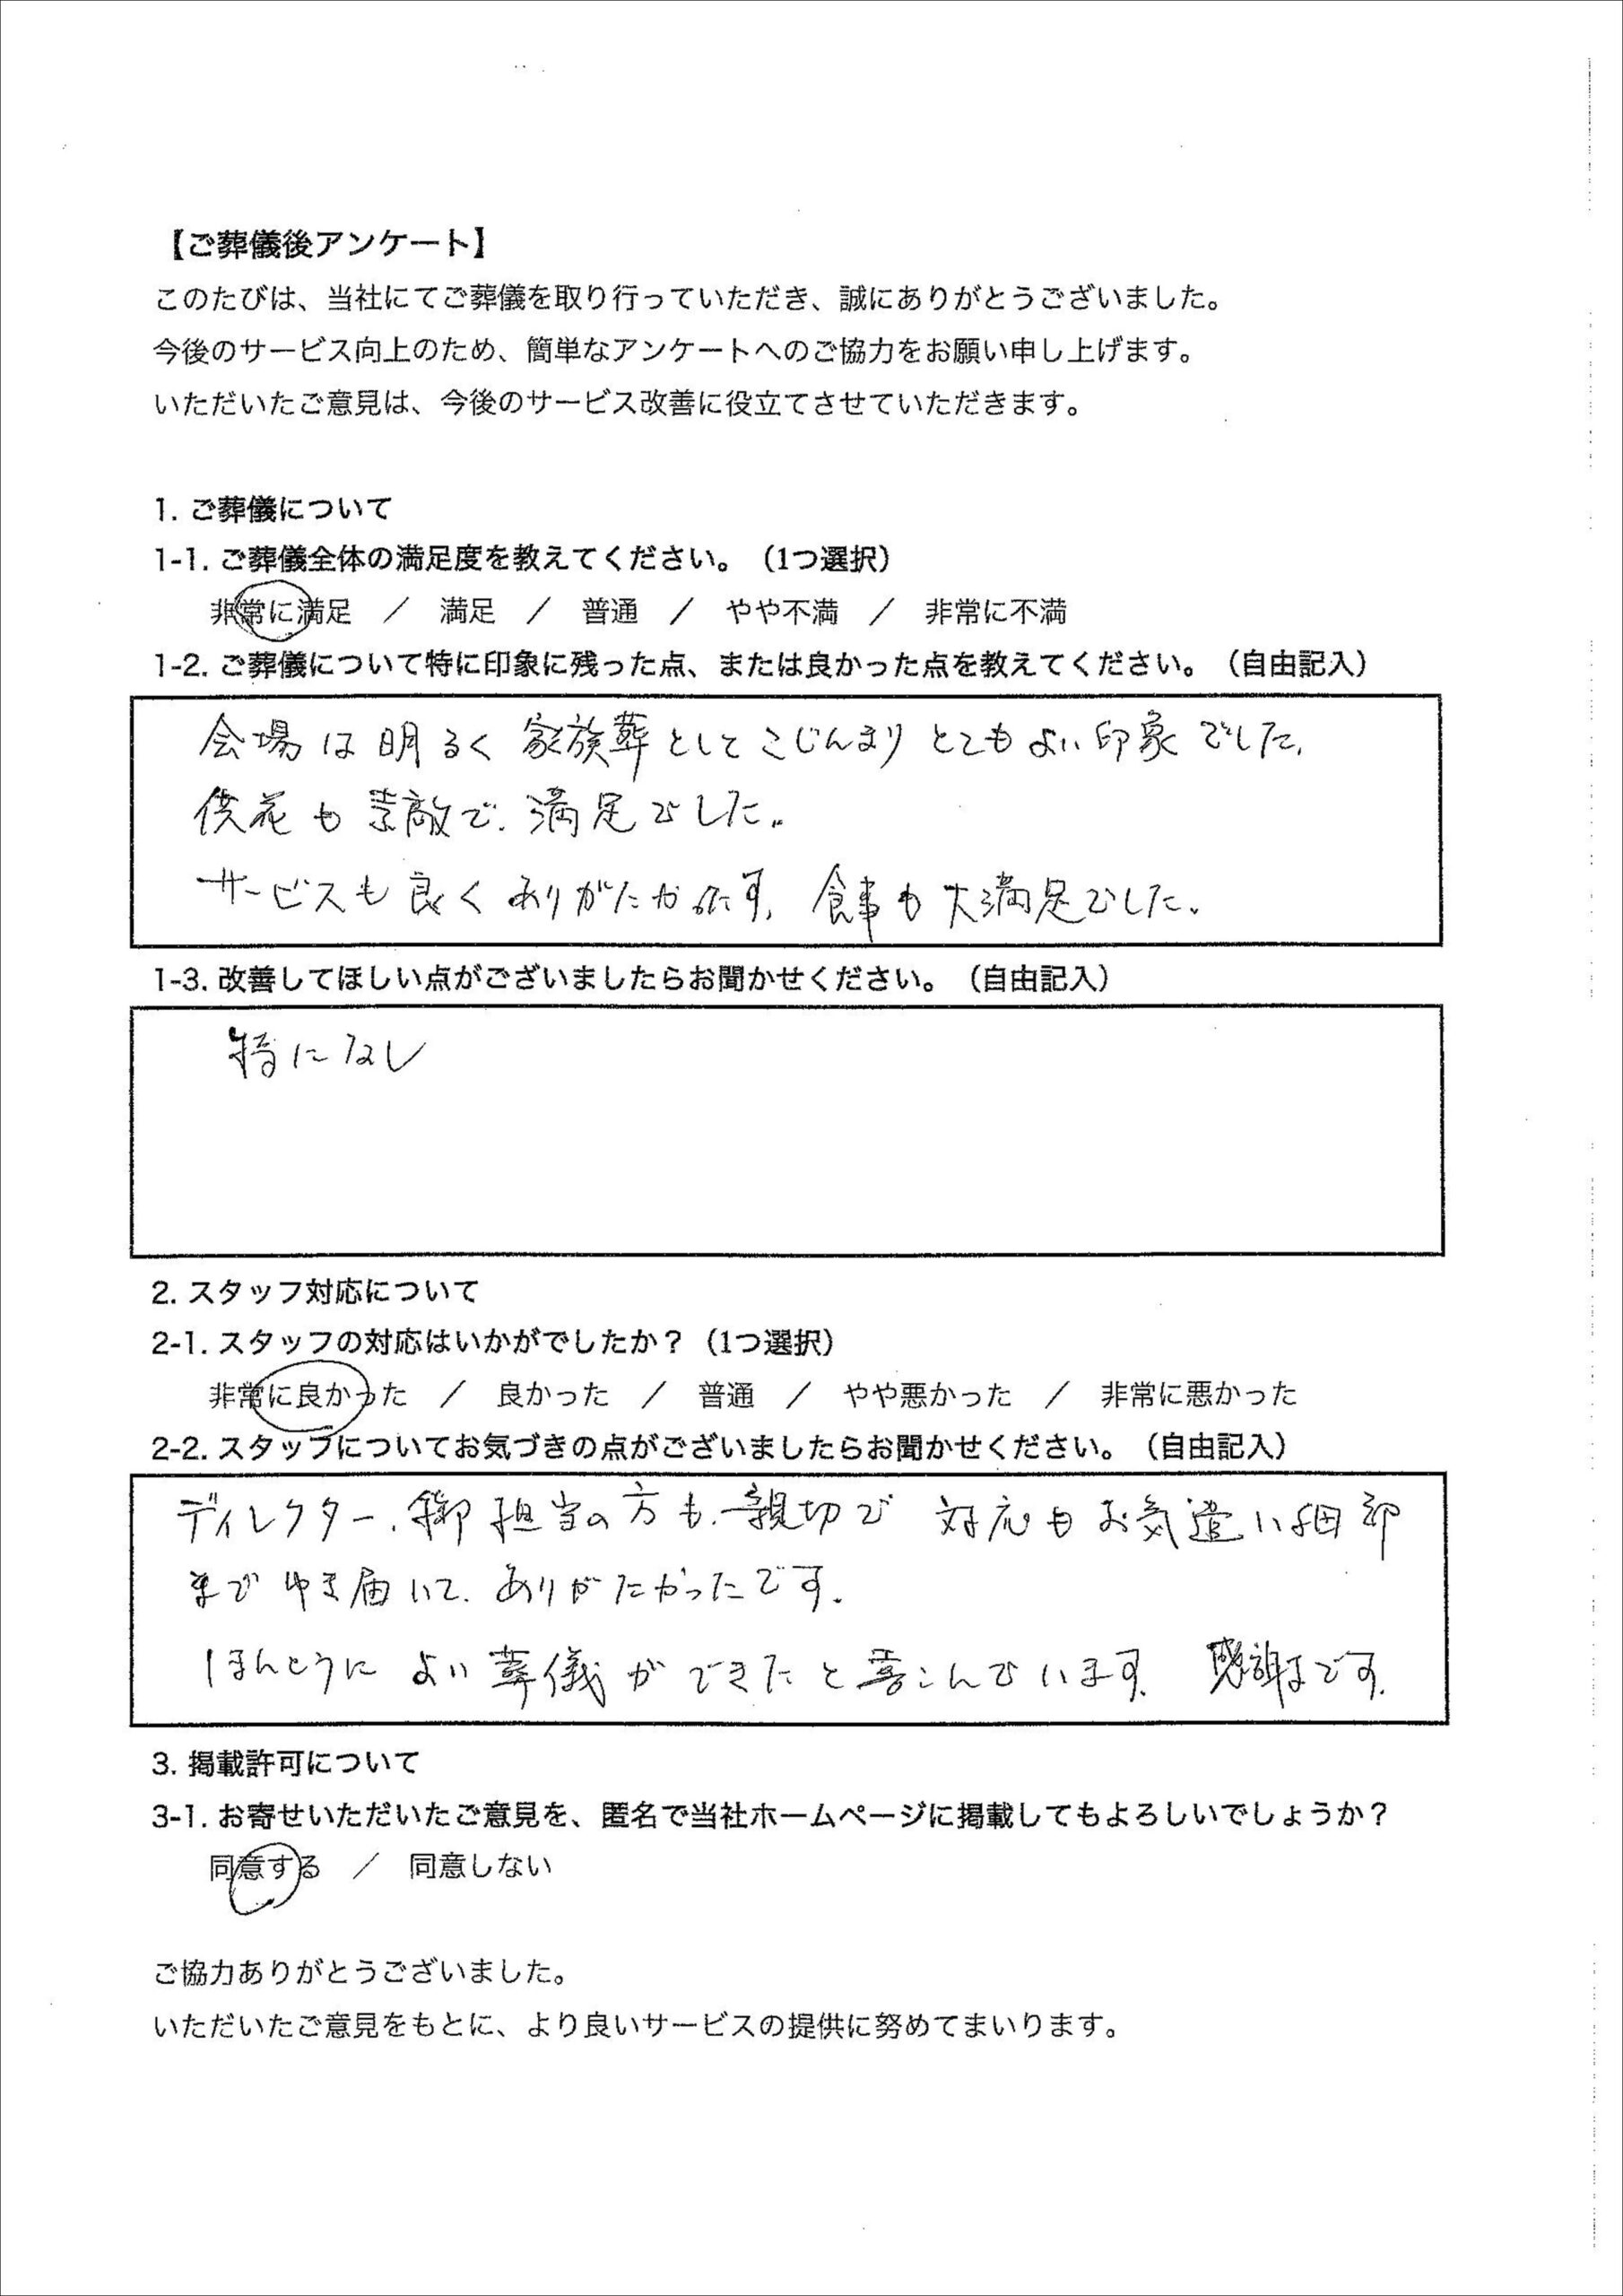 【ご葬儀後アンケート】
このたびは、当社にてご葬儀を取り行っていただき、誠にありがとうございました。
今後のサービス向上のため、簡単なアンケートへのご協力をお願い申し上げます。
いただいたご意見は、今後のサービス改善に役立てさせていただきます。
1. ご葬儀について
1-1. ご葬儀全体の満足度を教えてください。（1つ選択）
非常に満足 ／ 満足 ／ 普通 ／ やや不満 ／ 非常に不満
1-2. ご葬儀について特に印象に残った点、または良かった点を教えてください。（自由記入）
会場は明るく 家族葬としてこじんまり とてもよい印象でした。
供花も素敵で、満足でした。
サービスも良くありがたかったです。食事も大満足でした。
1-3. 改善してほしい点がございましたらお聞かせください。（自由記入）
特になし
2. スタッフ対応について
2-1. スタッフの対応はいかがでしたか？（1つ選択）
非常に良かった ／ 良かった ／ 普通 ／ やや悪かった ／ 非常に悪かった
2-2. スタッフについてお気づきの点がございましたらお聞かせください。（自由記入）
ディレクター、御担当の方も、親切で 対応もお気遣い細部
までゆき届いて、ありがたかったです。
ほんとうに よい葬儀ができたと喜こんでいます。 感謝です。
3. 掲載許可について
3-1. お寄せいただいたご意見を、匿名で当社ホームページに掲載してもよろしいでしょうか？
同意する ／ 同意しない
ご協力ありがとうございました。
いただいたご意見をもとに、より良いサービスの提供に努めてまいります。